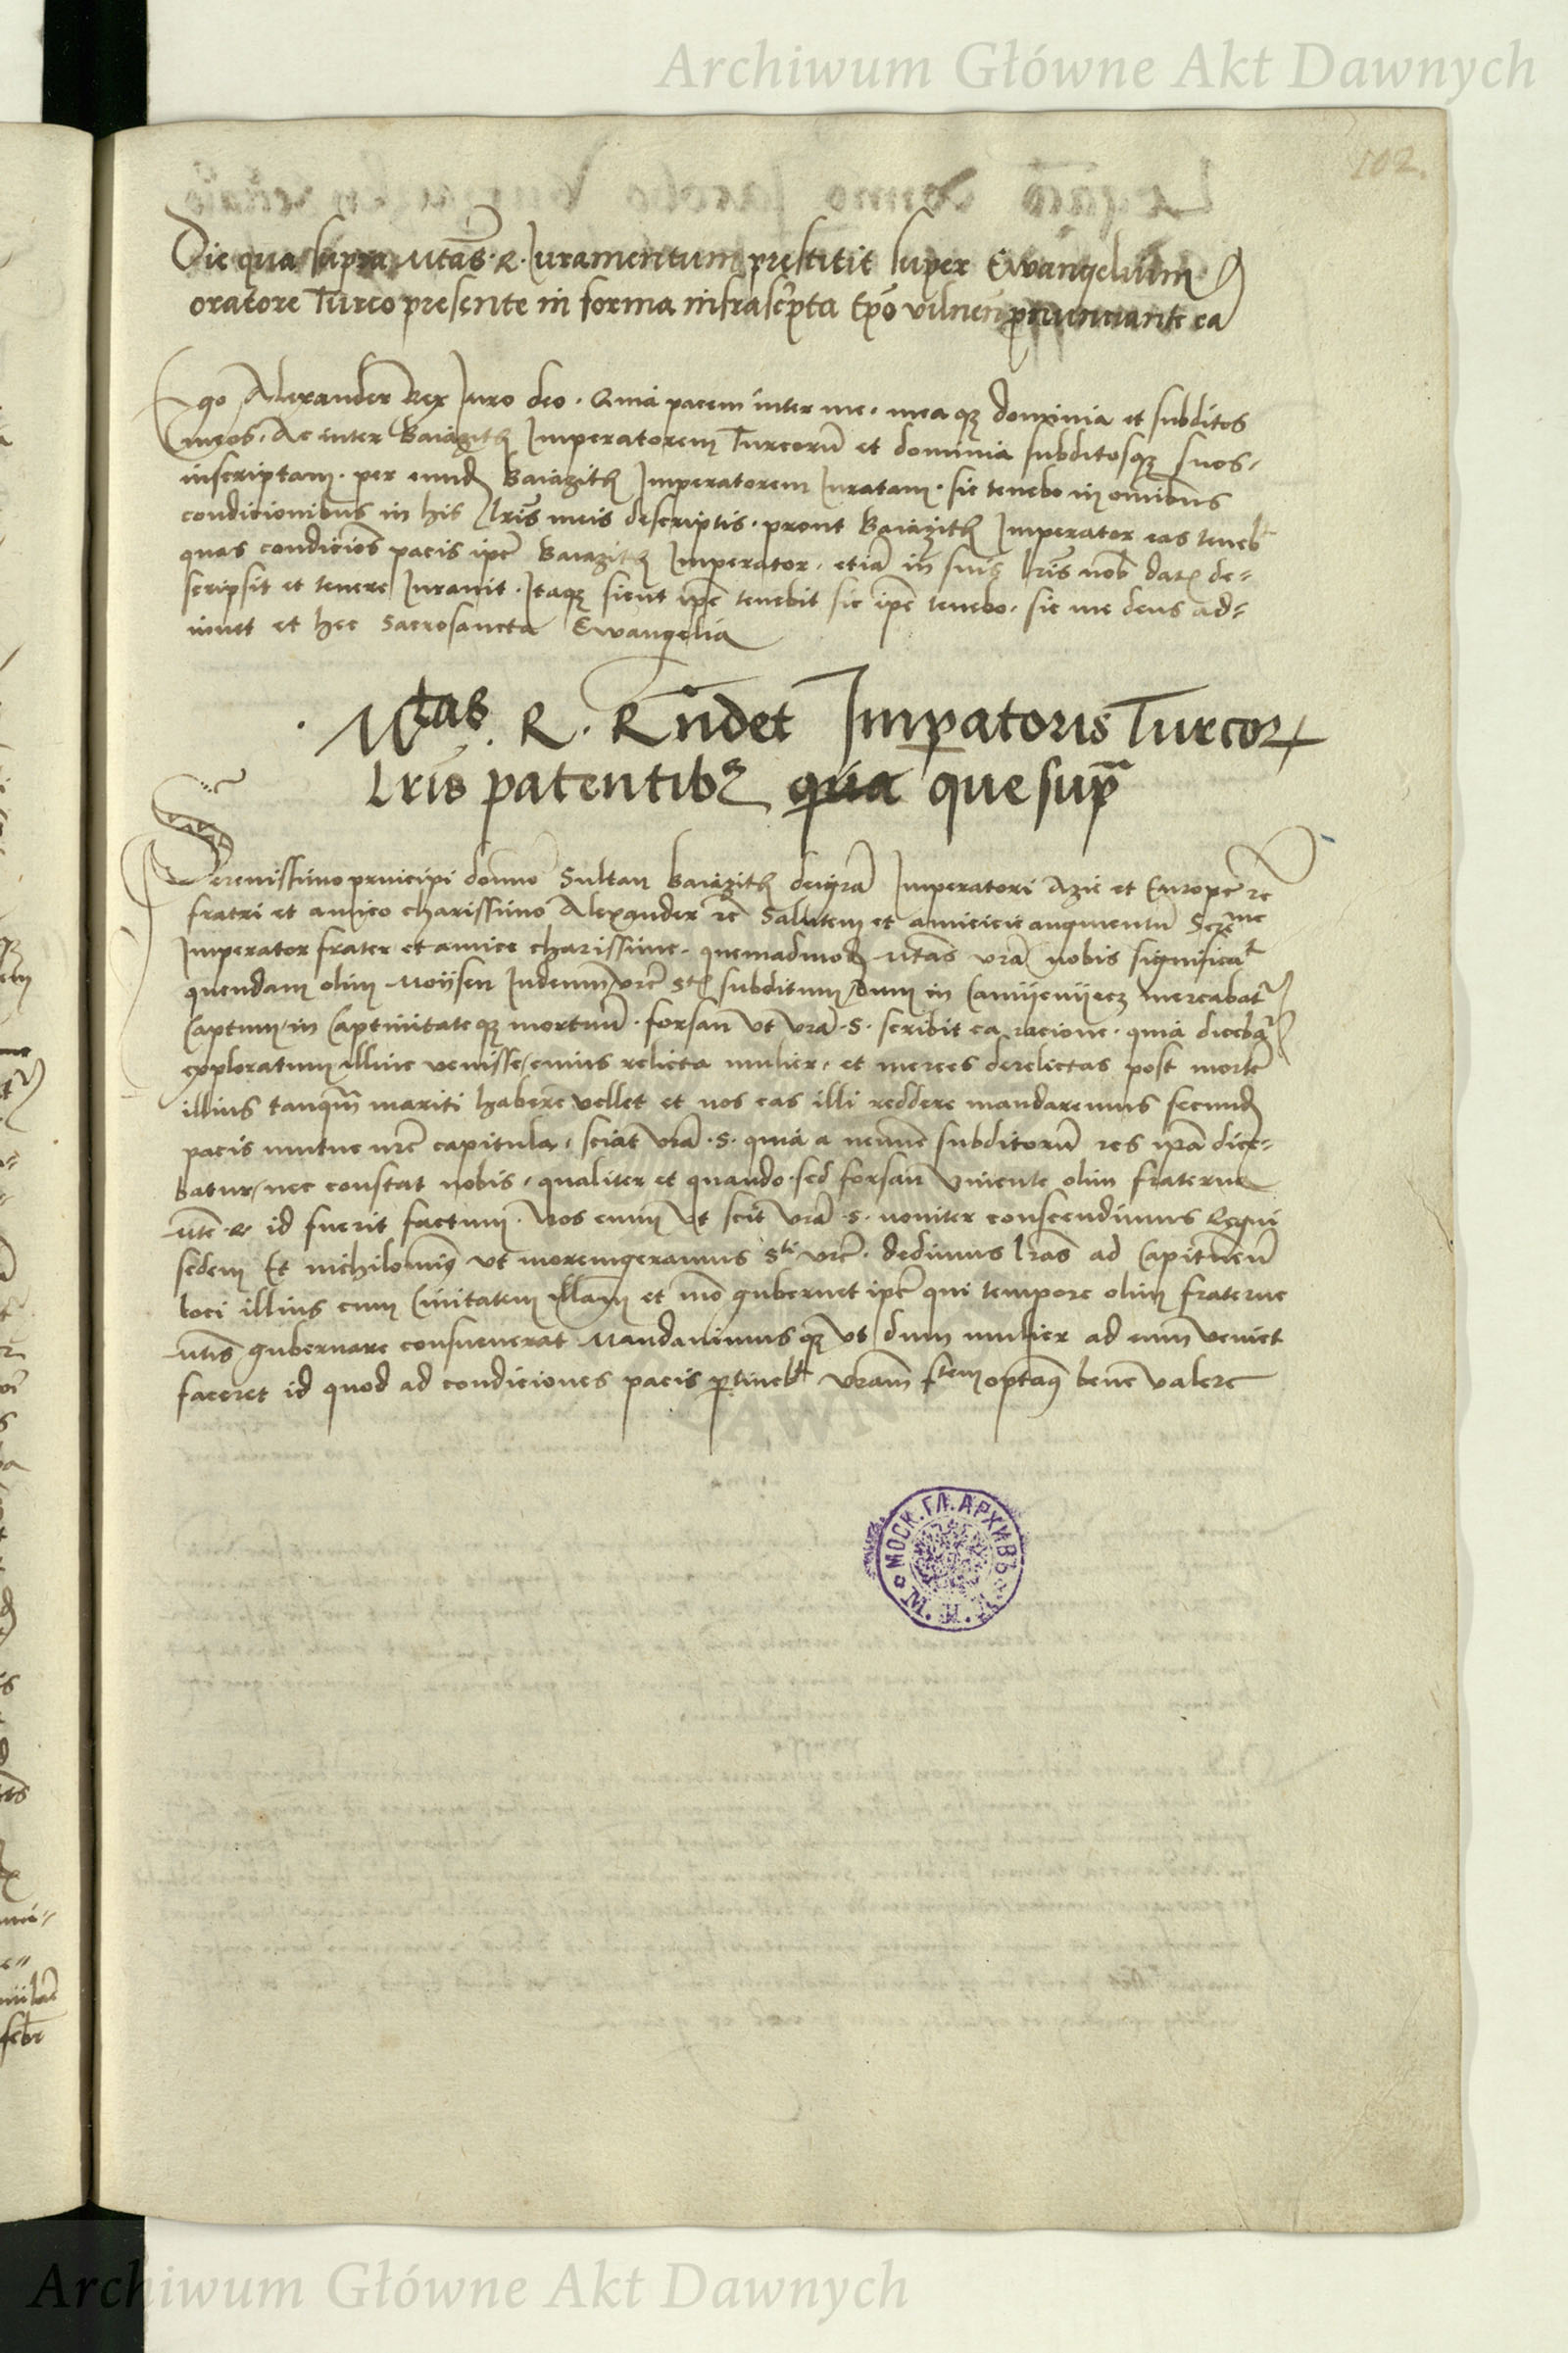 Archiwum Główne Akt Dawnych
102.
Die qua supra Mtas. R. Iuramentum prestitit super Ewangelium
oratore Turco presente in forma infrascripta Epo vilnen pnunciante ea
Ego Alexander Rex Iuro deo. Quia pacem inter me. mea qz dominia et subditos
meos. Ac inter Baiazith Imperatorem Turcorū et dominia subditosqz suos
inscriptam. per eund Baiazith Imperatorem Iuratam. sic tenebo in omibus
condicionibus in his lris meis descriptis. prout Baiazith Imperator eas teneb
quas condicioes pacis ipe Baiazith Imperator. etiā in suis lris nob dat de=
scripsit et tenere Iurauit. Itaqz sicut ipe tenebit sic ipe tenebo. sic me deus ad=
iuuet et hec sacrosancta Ewangelia
Mtas. R. Rndet Impatoris Turcor
lris patentib qua que sup
Serenissimo principi domno Sultan Baiazith dei gra Imperatori Azie et Europe rc
fratri et amico charissimo Alexander rc Salutem et amicicie augmentū Serme
Imperator frater et amice charissime. quemadmod Mtas vra nobis significat
quendam olim Moijsen Iudeum vre Stis subditum dum in Camijenijecz mercabat
Captum in Captiuitate qz mortuū. forsan vt vra. S. scribit ea racione. quia diceba
exploratum illuc venisse cuius relicta mulier. et merces derelictas post morte
illius tanqm mariti habere vellet et nos eas illi reddere mandaremus secund
pacis mutue nre capitula. sciat vra. S. quia a nemine subditorū res ipa dice=
batur nec constat nobis. qualiter et quando. sed forsan viuente olim fraterne
Mte. R. id fuerit factum. Nos enim vt scit vra. S. nouiter conscendimus Regni
sedem Et nichilomi vt moremgeramus Sti vre. dedimus lras ad Capitneū
loci illius cum Ciuitatem illam et mo gubernet ipe qui tempore olim fraterne
Mtis gubernare consueuerat Mandauimus qz vt dum mulier ad eum veniet
faceret id quod ad condiciones pacis ptinebt vram ftem optam bene valere
МОСК. ГЛ. АРХИВЪ М. И. Д.
Archiwum Główne Akt Dawnych